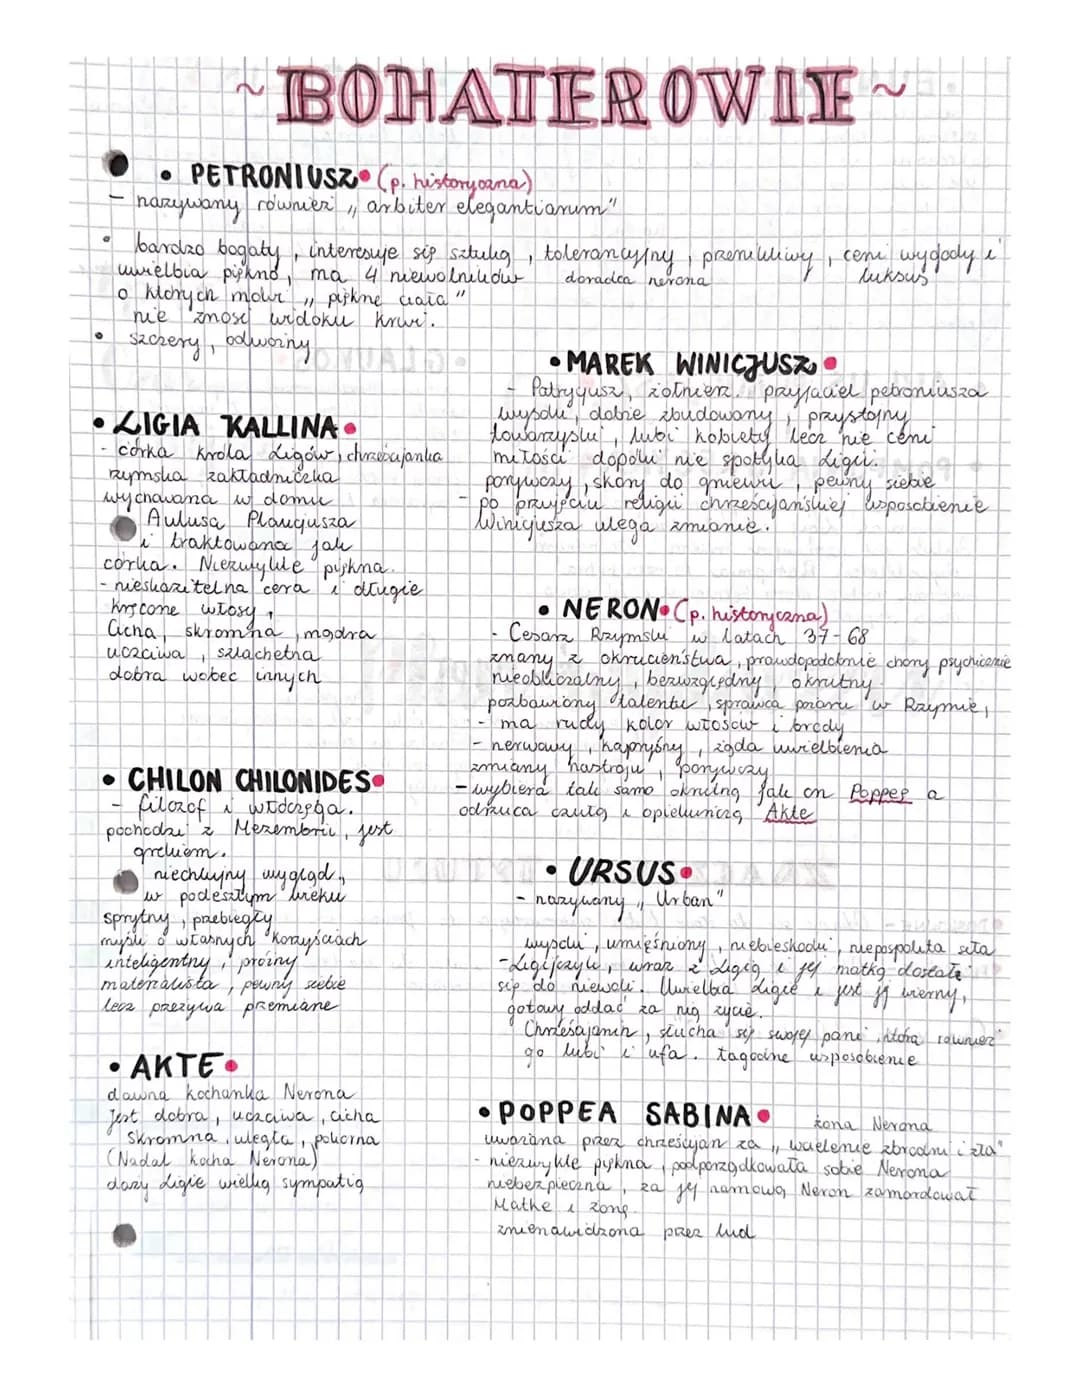 ~BOHATEROWIE~
• PETRONIUSZ• (p. historyczna)
- nazywany również „arbiter elegantiarum"
• bardzo bogaty, interesuje się sztuką, tolerancyjny, przenikliwy, ceni wygody i
uwielbia piękno, ma 4 niewolników doradca nerona luksus
o których mówi „piękne ciała"
nie znosi widoku krwi.
• szczery, odważny
• MAREK WINICJUSZ•
- Patrycjusz, żołnierz. przyjaciel petroniusza
wysoki, dobrze zbudowany, przystojny
towarzyski, lubi kobiety lecz nie ceni
miłości dopóki nie spotyka Ligii.
porywczy, skory do gniewu, pewny siebie
- po przyjęciu religii chrześcijańskiej usposobienie
Winicjusza ulega zmianie.
• LIGIA KALLINA•
- córka króla Ligów, chrześcijanka
rzymska zakładniczka
wychowana w domu
Aulusa Plaucjusza
i traktowana jak
córka. Niezwykle piękna.
- nieskazitelna cera i długie
kręcone włosy,
Cicha, skromna, mądra
uczciwa, szlachetna
dobra wobec innych
• NERON• (p. historyczna)
- Cesarz Rzymski w latach 37-68
znany z okrucieństwa, prawdopodobnie chory psychicznie
nieobliczalny, bezwzględny, okrutny
pozbawiony talentu, sprawca pożaru w Rzymie,
- ma rudy kolor włosów i brody
- nerwowy, kapryśny, żąda uwielbienia
zmiany nastroju, porywczy
- wybiera tak samo okrutną jak on Poppeę a
odrzuca czułą i opiekuńczą Akte
• CHILON CHILONIDES•
- filozof i włóczęga.
pochodzi z Mezembrii, jest
grekiem.
niechlujny wygląd,
w podeszłym wieku
sprytny, przebiegły
myśli o własnych korzyściach
inteligentny, próżny
materialista, pewny siebie
lecz przeżywa przemianę
• URSUS•
- nazywany „Urban"
wysoki, umięśniony, niebieskooki, niepospolita siła
- Ligijczyk, wraz z Ligią i jej matką dostał
się do niewoli. Uwielbia Ligię i jest jej wierny,
gotowy oddać za nią życie.
Chrześcijanin, słucha się swojej pani, która również
go lubi i ufa. łagodne usposobienie
• AKTE•
dawna kochanka Nerona
Jest dobra, uczciwa, cicha
skromna, uległa, pokorna
(Nadal kocha Nerona)
darzy Ligie wielką sympatią
• POPPEA SABINA• żona Nerona
uważana przez chrześcijan za „wcielenie zbrodni i zła"
- niezwykle piękna, podporządkowała sobie Nerona
niebezpieczna, za jej namową Neron zamordował
Matkę i żonę.
znienawidzona przez lud